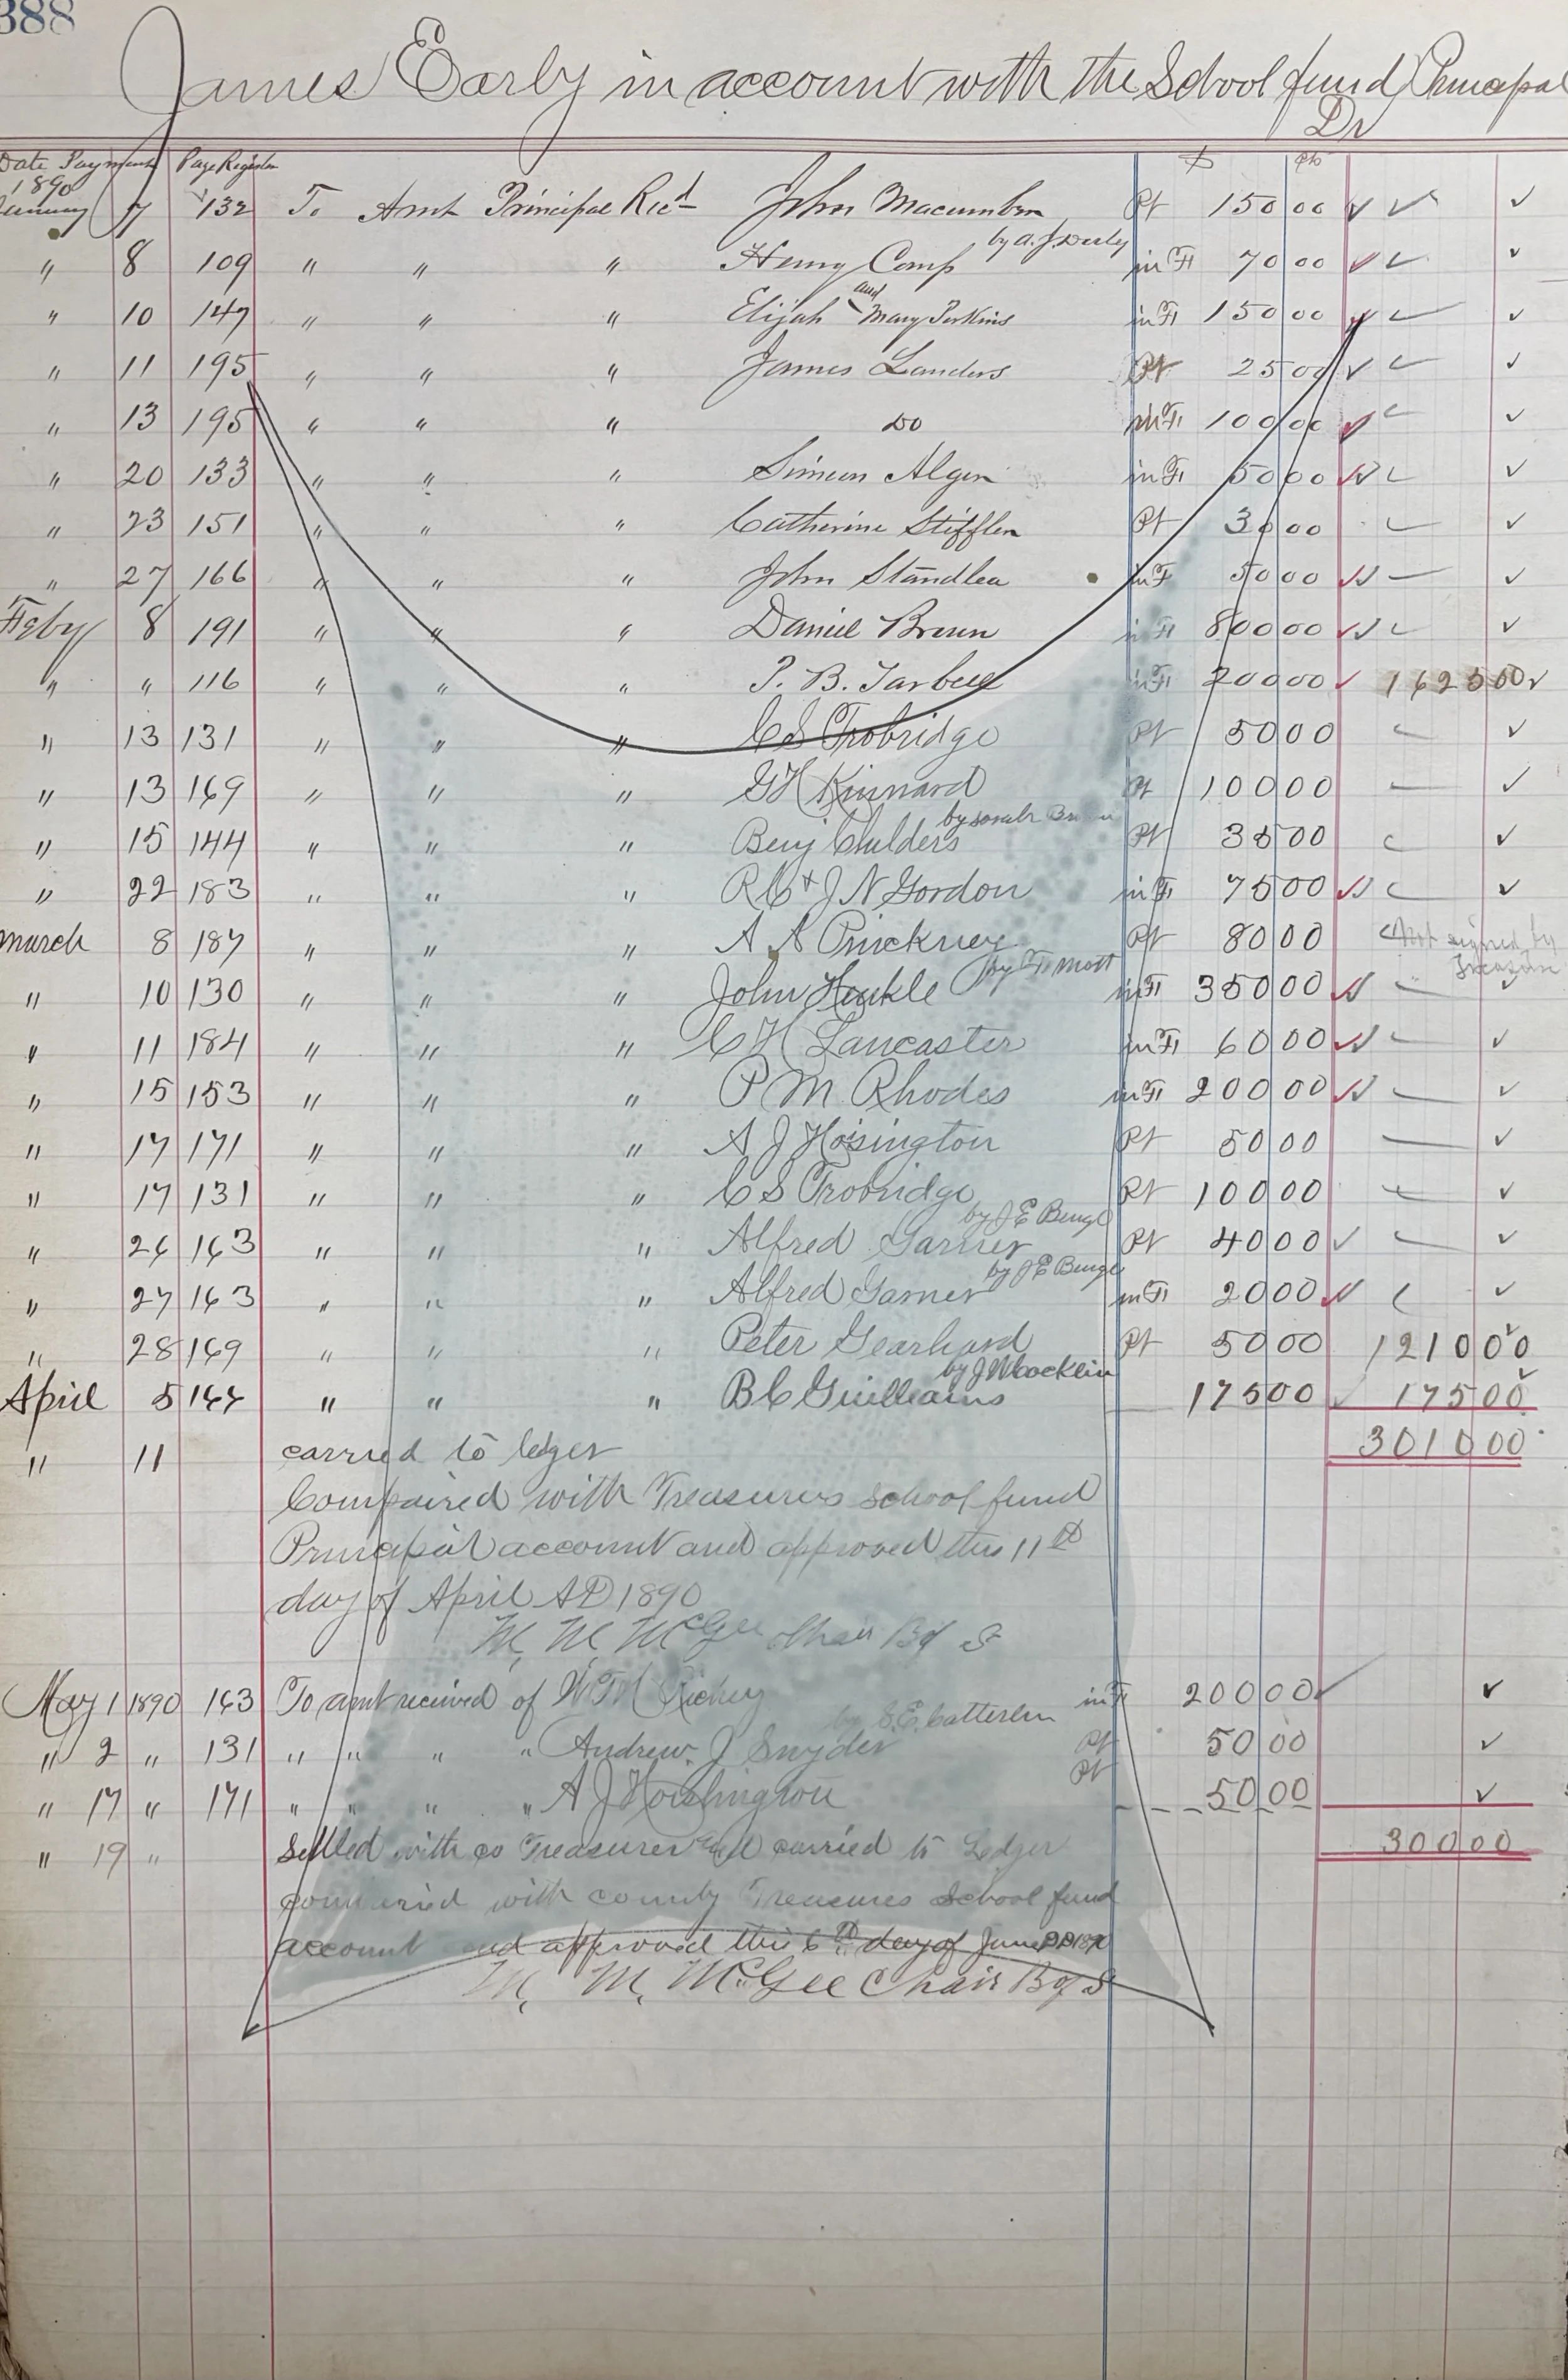 388
James Early in account with the School fund Principal
Dr
Date Payment Page Register $ cts
1890
January 7 132 To Amt Principal Recd John Macumber Pt 150 00
by A. J. Derly
" 8 109 " " " Henry Comp in F 70 00
" 10 147 " " " Elijah and Mary Perkins in F 150 00
" 11 195 " " " James Landers Pt 25 00
" 13 195 " " " Do in F 100 00
" 20 133 " " " Simeon Alger in F 50 00
" 23 151 " " " Catherine Stiffler Pt 30 00
" 27 166 " " " John Standlea in F 50 00
Feby 8 191 " " " Daniel Brown in F 800 00
" " 116 " " " P. B. Tarbell in F 200 00 1625 00
" 13 131 " " " C S Trobridge Pt 50 00
" 13 169 " " " G H Kinnard Pt 100 00
by Sarah Brown
" 15 144 " " " Benj Childers Pt 35 00
" 22 183 " " " R C & J N Gordon in F 75 00
March 8 187 " " " A A Pinckney Pt 80 00 Not signed by
by F Mott Treasurer
" 10 130 " " " John Henkle in F 350 00
" 11 184 " " " C H Lancaster in F 60 00
" 15 153 " " " P M Rhodes in F 200 00
" 17 171 " " " A J Hoisington Pt 50 00
" 17 131 " " " C S Trobridge Pt 100 00
by J E Benge
" 26 163 " " " Alfred Garner Pt 40 00
by J E Benge
" 27 163 " " " Alfred Garner in F 20 00
" 28 169 " " " Peter Gearhard Pt 50 00 1210 00
by J W Cocklin
April 5 144 " " " B C Guilliams 175 00 175 00
" 11 carried to ledger 3010 00
Compaired with Treasurers school fund
Principal account and approved this 11th
day of April AD 1890
M. M. McGee Chair B of S
May 1 1890 163 To amt received of W M Richey in F 200 00
by S. E. Catterlin
" 2 " 131 " " " " Andrew J Snyder Pt 50 00
" 17 " 171 " " " " A J Hoishington Pt 50 00
" 19 " Settled with co Treasurer and carried to Ledger 300 00
compaired with county Treasures School fund
account and approved this 6th day of June AD 1890
M. M. McGee Chair B of S